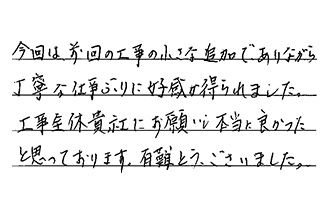 今回は、前回の工事の小さな追加でありながら
丁寧な仕事ぶりに好感が得られました。
工事全体貴社にお願いし本当に良かった
と思っております。有難とう、ございました。